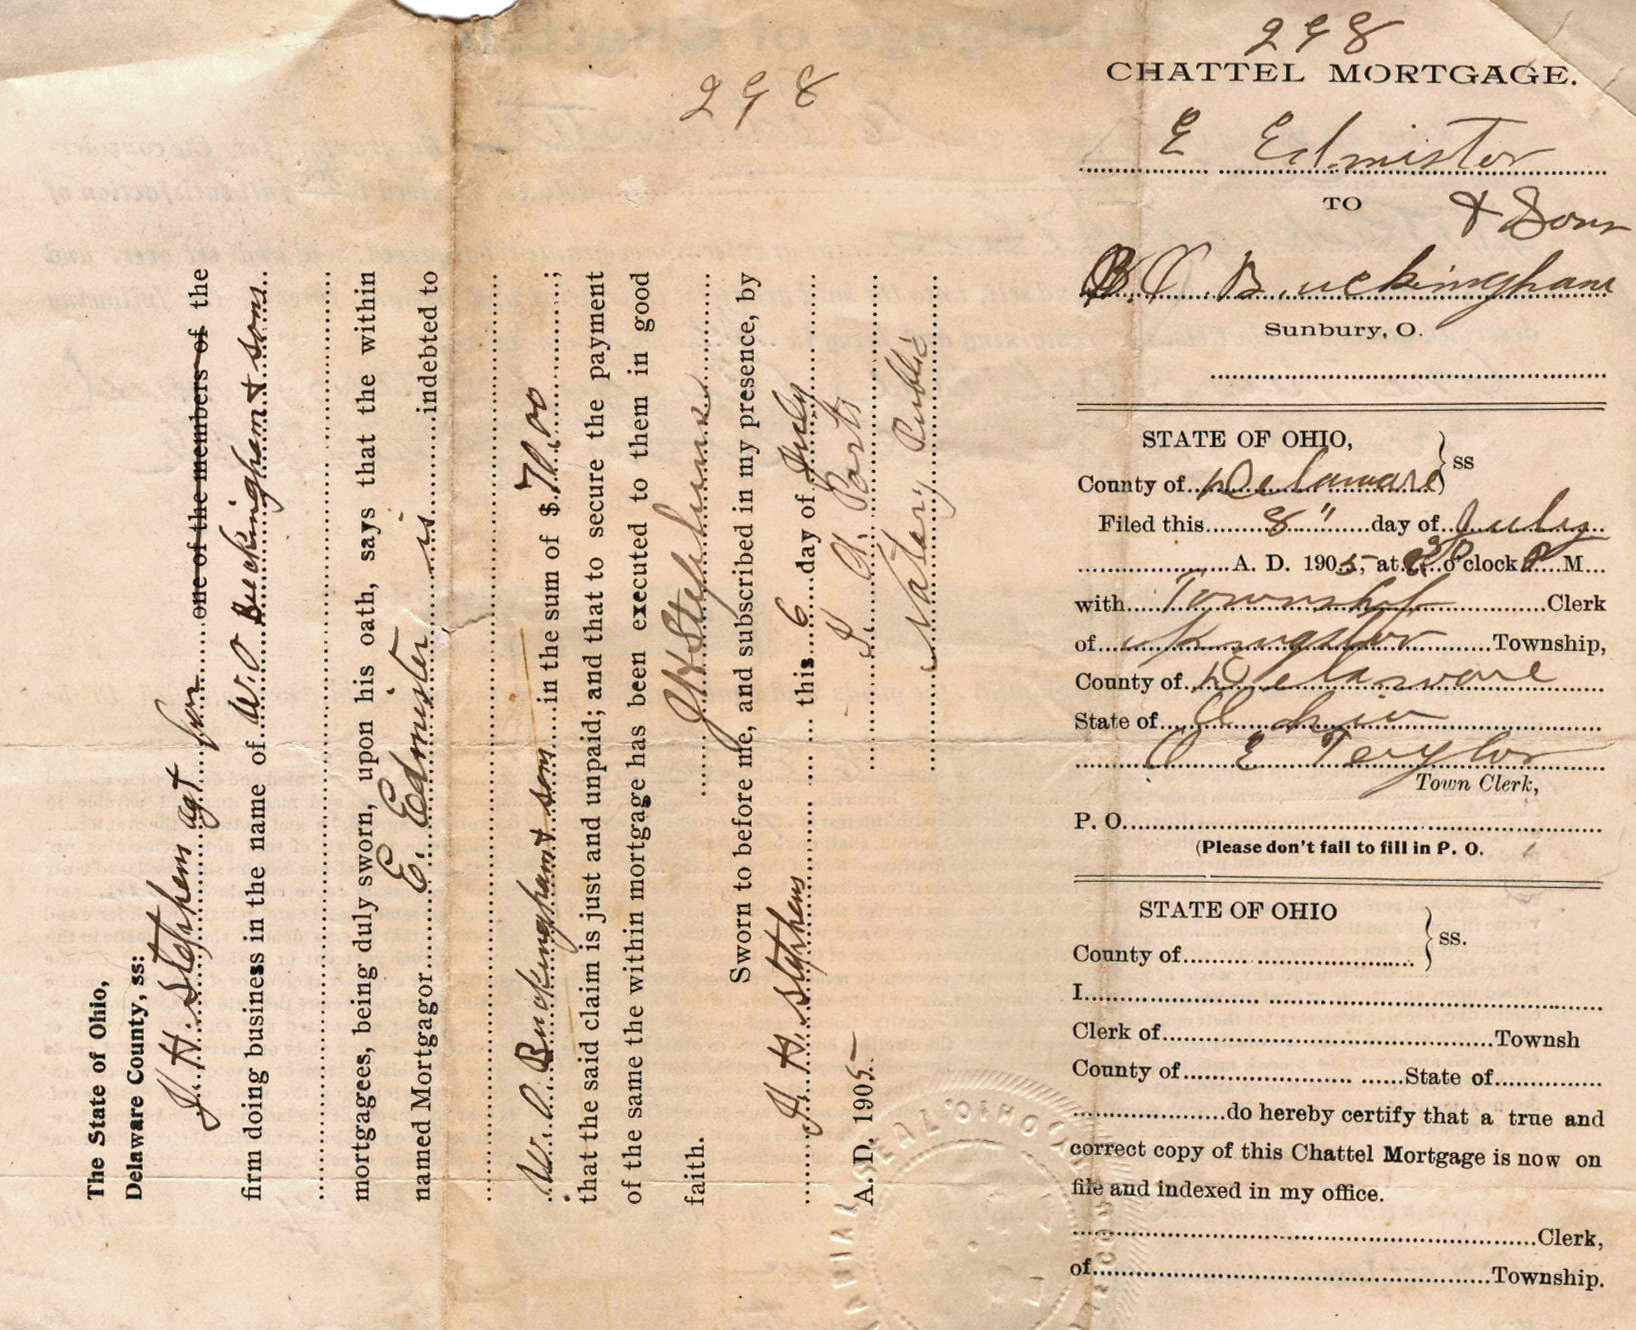 The State of Ohio,
Delaware County, ss:
J. H. Stephens agt for one of the members of the
firm doing business in the name of W. O Buckingham & sons
mortgagees, being duly sworn, upon his oath, says that the within
named Mortgagor E. Edmister is indebted to
W. O. Buckingham & sons in the sum of $ 70.00 ;
that the said claim is just and unpaid; and that to secure the payment
of the same the within mortgage has been executed to them in good
faith. J H Stephens
Sworn to before me, and subscribed in my presence, by
J H. Stephens this 6 day of July
A. D. 1905
Notary Public
298
298
CHATTEL MORTGAGE.
E Edmister
TO
& Sons
Buckingham
Sunbury, O.
STATE OF OHIO,
County of Delaware } ss
Filed this 8" day of July
A. D. 1905, at o'clock P M
with Township Clerk
of Kingston Township,
County of Delaware
State of Ohio
O E Taylor
Town Clerk,
P. O.
(Please don't fail to fill in P. O.
STATE OF OHIO
County of } ss.
I
Clerk of Townsh
County of State of
do hereby certify that a true and
correct copy of this Chattel Mortgage is now on
file and indexed in my office.
Clerk,
of Township.